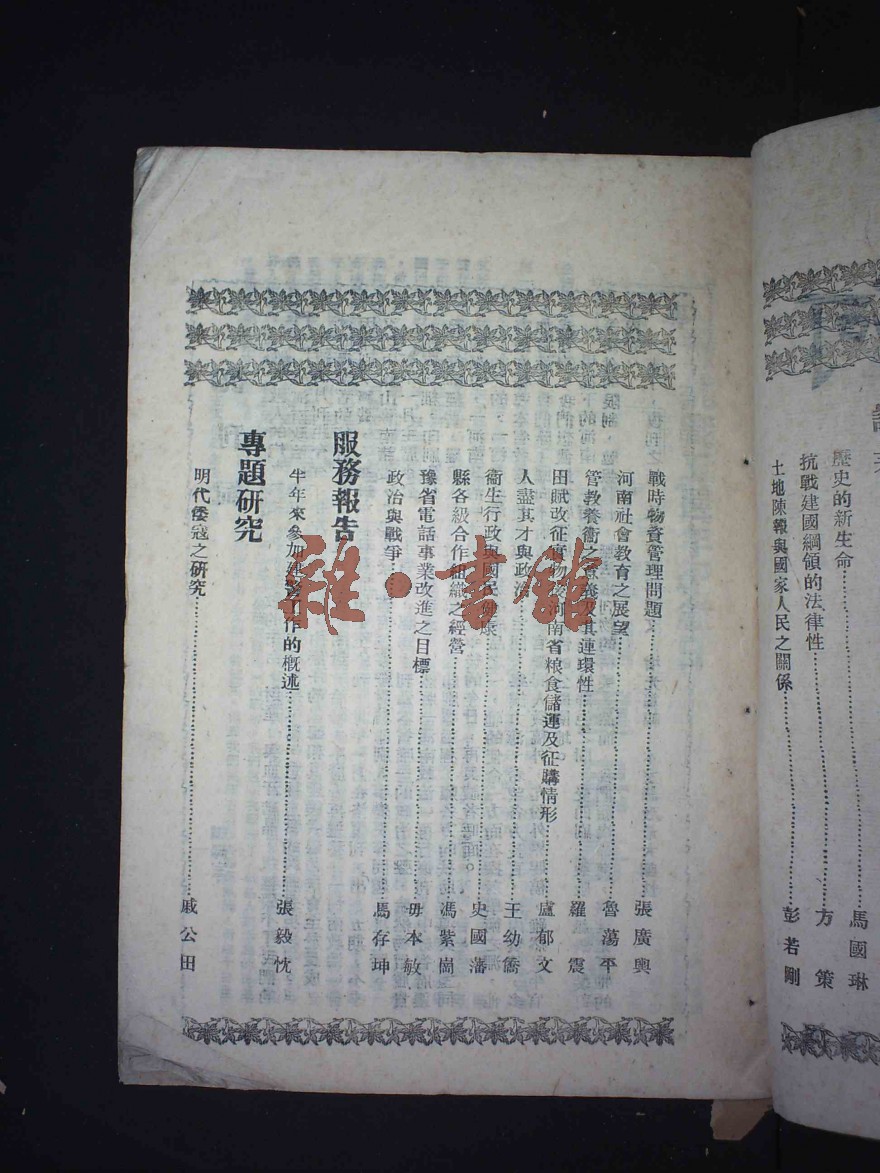 歷史的新生命 馬國琳
抗戰建國綱領的法律性 方策
土地陳報與國家人民之關係 彭若剛
戰時物資管理問題 張廣興
河南社會教育之展望 魯蕩平
管教養衛之意義及其連環性 羅震
田賦改征實物後河南省粮食儲運及征購情形 盧郁文
人盡其才與政治 王幼僑
衛生行政與國民健康 史國藩
縣各級合作組織之經營 馮紫崗
豫省電話事業改進之目標 毋本敏
政治與戰爭 馬存坤
服務報告
半年來參加建警工作的概述 張毅忱
專題研究
明代倭寇之研究 戚公田
雜·書館